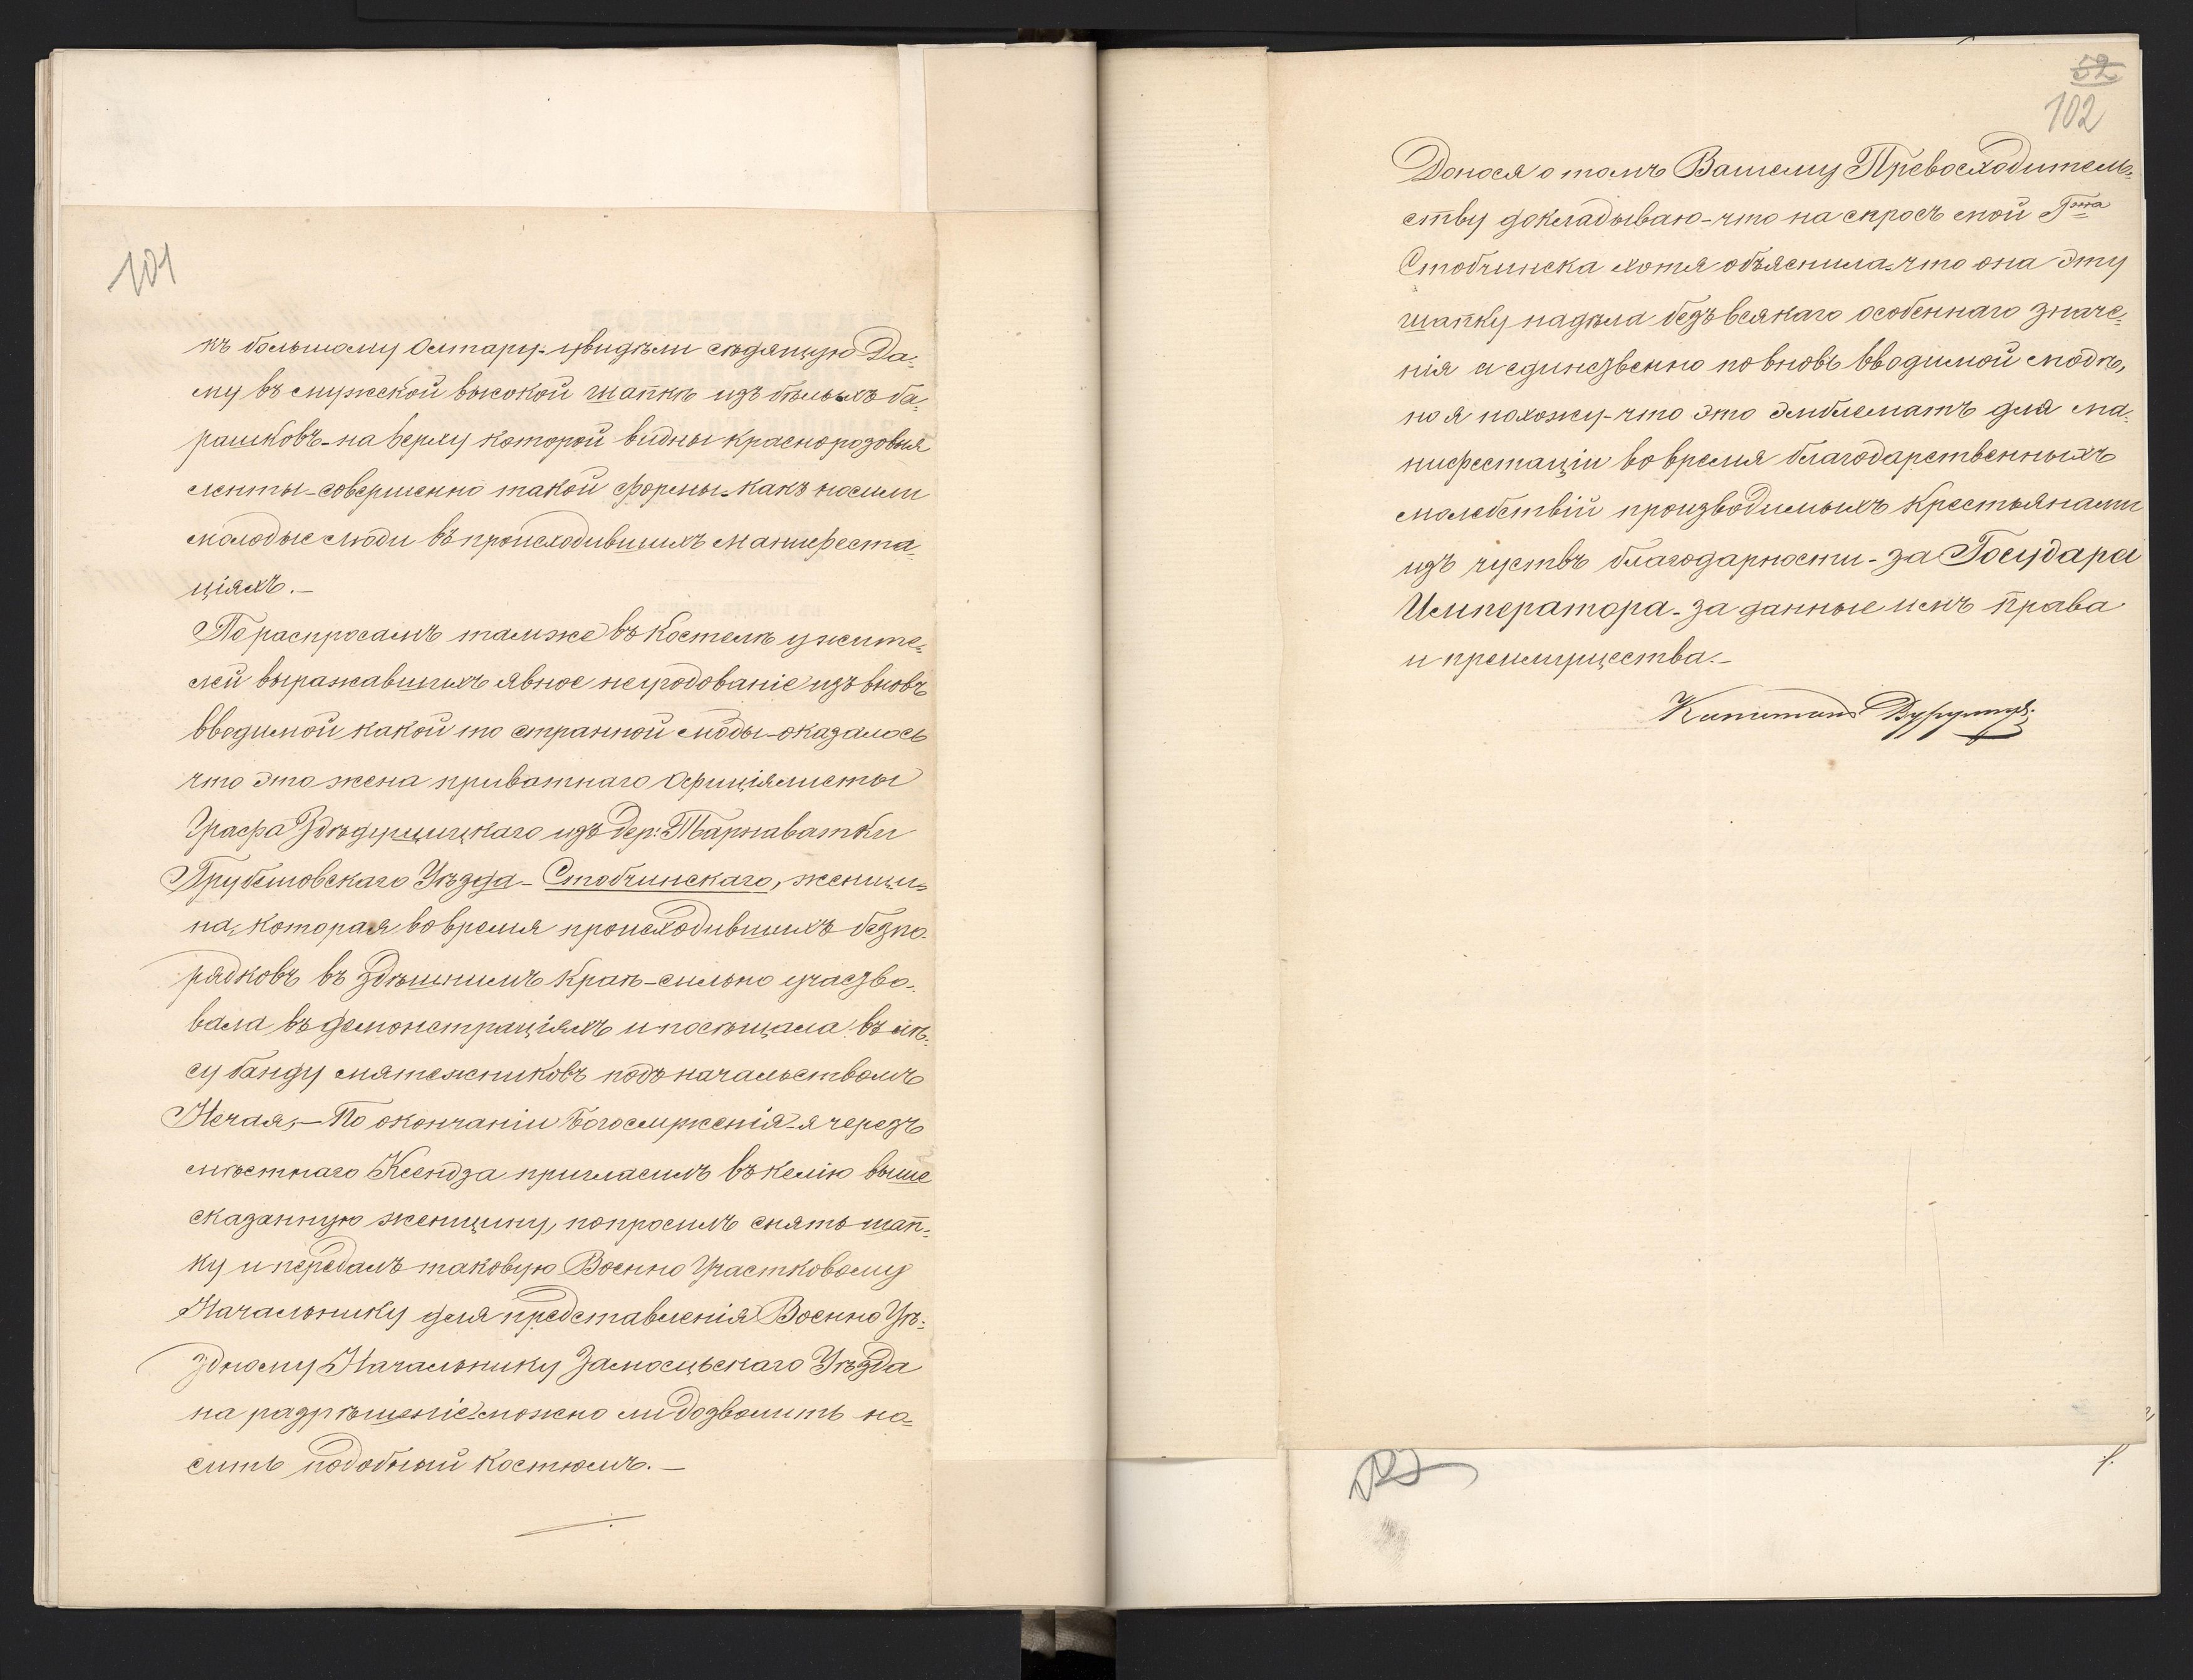 101
къ большому Олтару-увидѣли сѣдящую Да-
му въ мужской высокой шапкѣ изъ бѣлыхъ ба-
рашковъ-на верху которой видны краснорозовыя
ленты-совершенно такой формы-какъ носили
молодые люди въ происходившихъ манифеста-
ціяхъ.-
По распросамъ тамже въ Костелѣ у жите-
лей выражавшихъ явное негодованіе изъ вновь
вводимой какой то странной моды-оказалось
что это жена приватнаго Офиціялисты
Графа изъ дер: Тарнаватки
Грубешовскаго Уѣзда- Стобчинскаго, женщи-
на, которая во время происходившихъ безпо-
рядковъ въ здѣшнимъ Краѣ-сильно учасзво-
вала въ демонстраціяхъ и посѣщала въ лѣ-
су банду мятежниковъ подъ начальствомъ
Нечая,-По окончаніи Богослуженія-я черезъ
мѣстнаго Ксендза пригласилъ въ келію выше
сказанную женщину, попросилъ снять шап-
ку и передалъ таковую Военно Участковому
Начальнику для представленія Военно Уѣ-
здному Начальнику Замосцьскаго Уѣзда
на разрѣшеніе-можно ли дозволить но-
сить подобный костюмъ.-
52
102
Донося о томъ Вашему Превосходитель-
ству докладываю-что на спросъ мой Гжа
Стобчинска хотя объяснила-что она эту
шапку надѣла безъ всякаго особеннаго значе-
нія а единзвенно по вновь вводимой модѣ,
но я нахожу-что это эмблематъ для ма-
нифестаціи во время благодарственныхъ
молебствій производимыхъ Крестьянами
изъ чуствъ благодарности-за Государа
Императора-за данные имъ права
и преимущества.-
Капитанъ